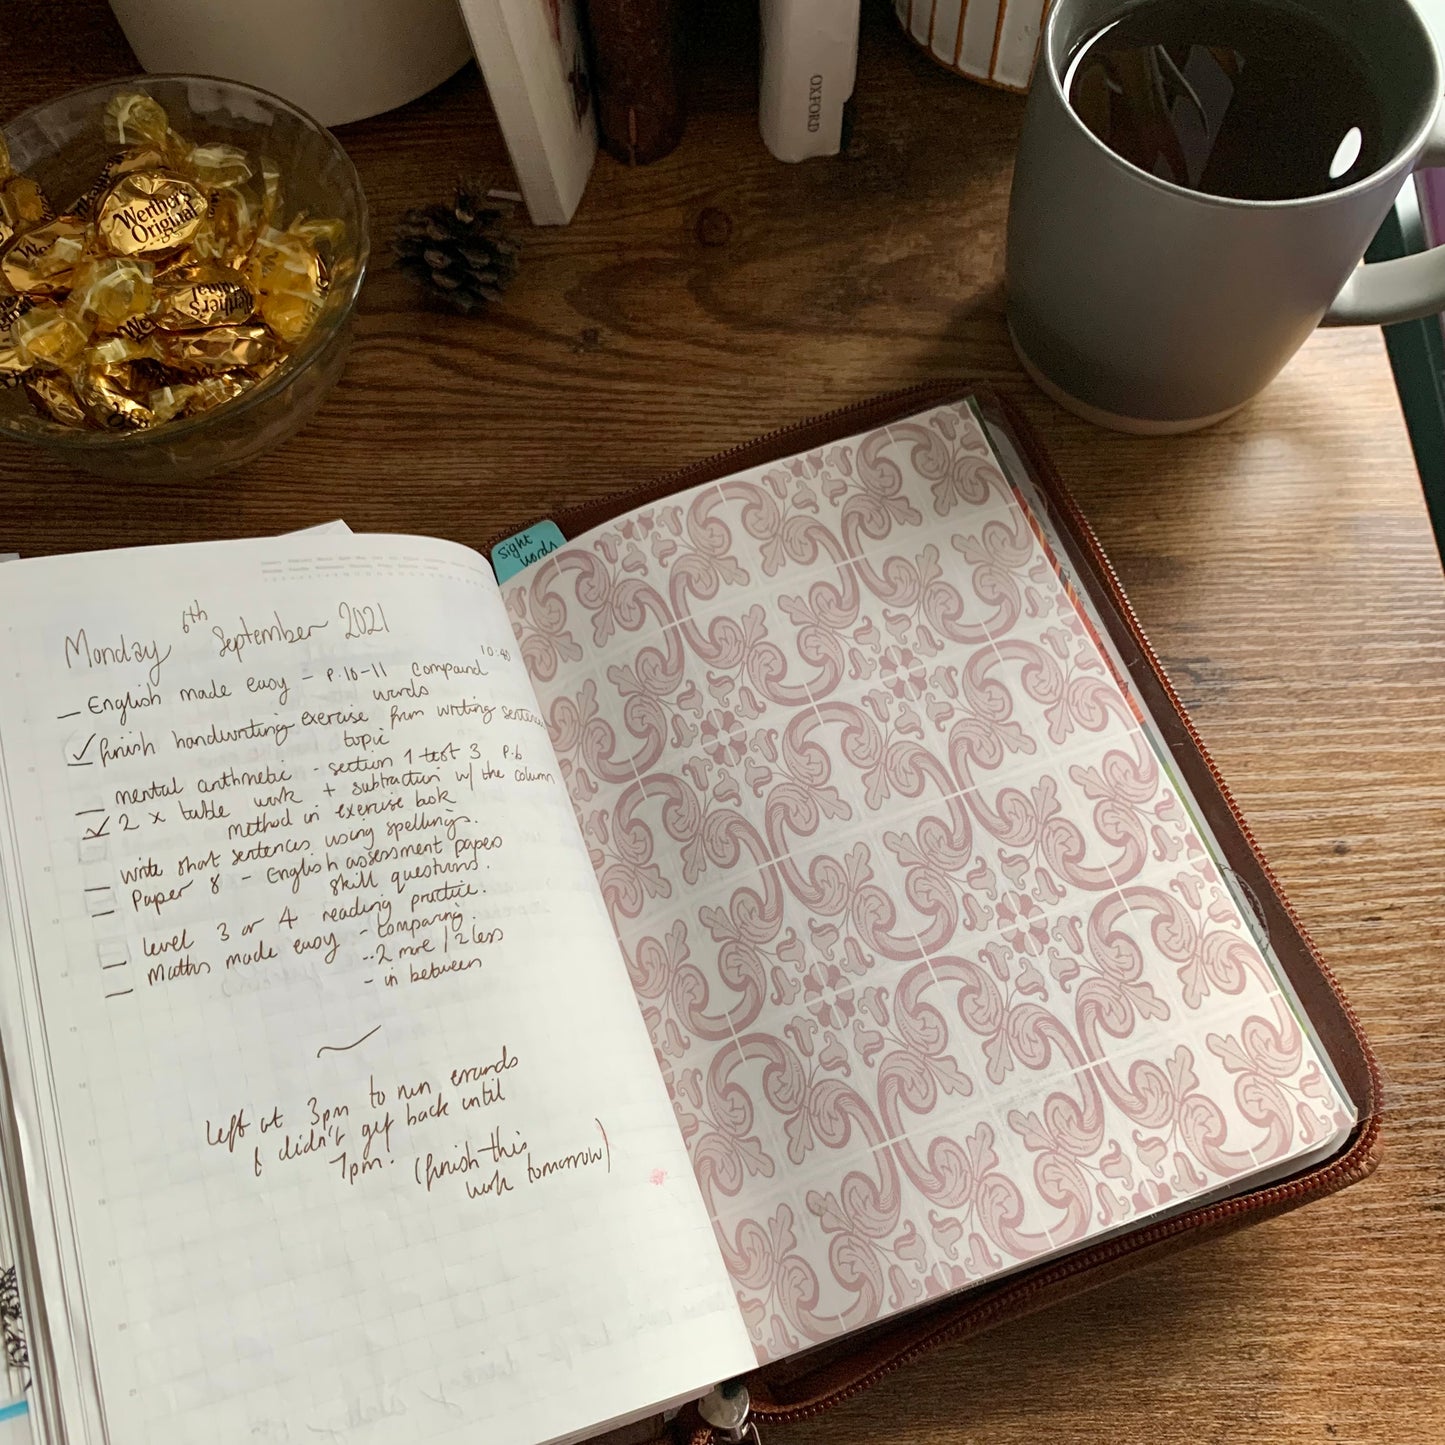 OXFORD
Werther's
Original
Sight
words
Monday 6th September 2021
10:40
English made easy - P.10-11 Compound
words
✓ finish handwriting exercise from writing sentence
topic
mental arithmetic - section 1 test 3 P.6
✓ 2 x table work + subtraction w/ the column
method in exercise book
write short sentences using spellings.
Paper 8 - English assessment papers
skill questions.
level 3 or 4 reading practice.
Maths made easy - comparing.
- 2 more / 2 less
- in between
Left at 3pm to run errands
& didn't get back until
7pm! (finish this
work tomorrow)